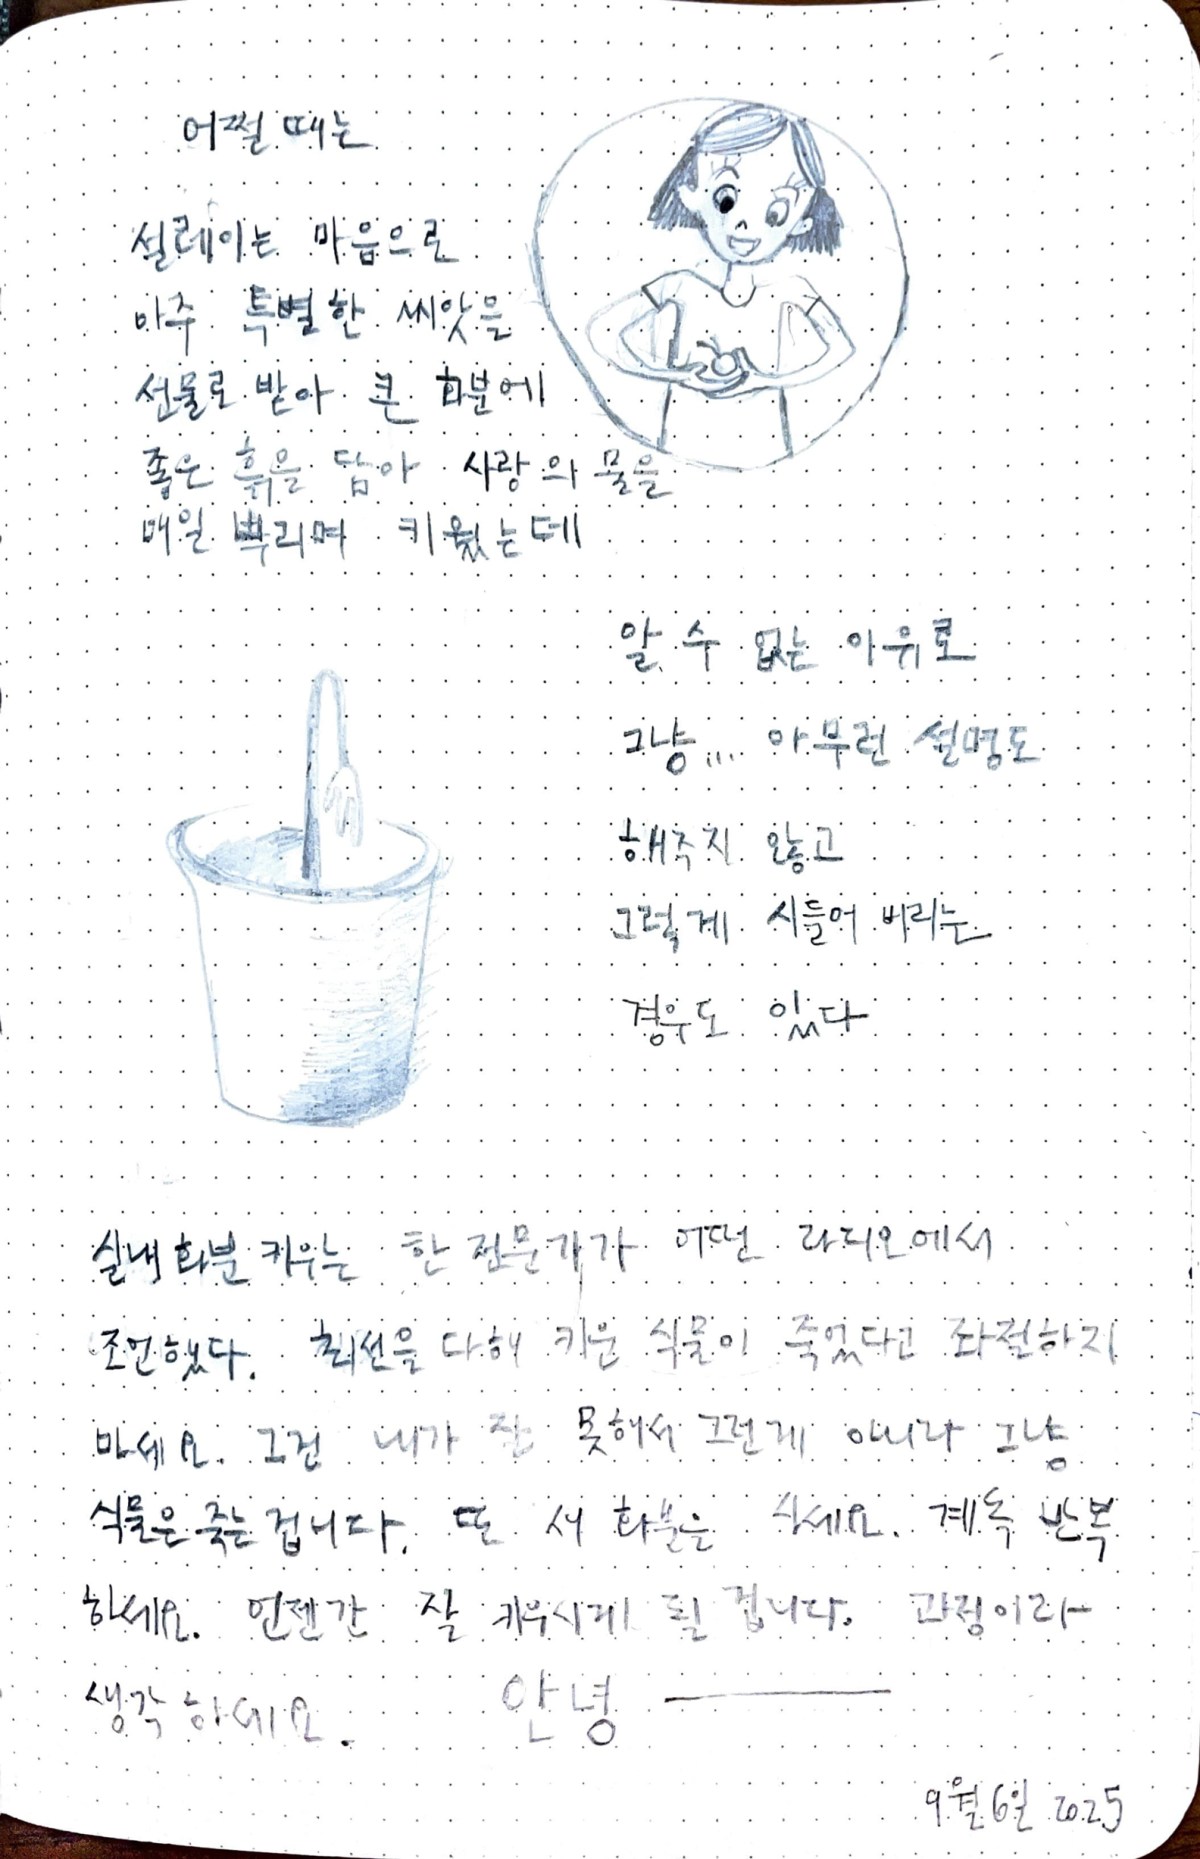 어쩔 때는
설레이는 마음으로
아주 특별한 씨앗을
선물로 받아 큰 화분에
좋은 흙을 담아 사랑의 물을
매일 뿌리며 키웠는데
알 수 없는 이유로
그냥... 아무런 설명도
해주지 않고
그렇게 시들어 버리는
경우도 있다
실내 화분 키우는 한 전문가가 어떤 라디오에서
조언했다. 최선을 다해 키운 식물이 죽었다고 좌절하지
마세요. 그건 내가 잘 못해서 그런게 아니라 그냥
식물은 죽는 겁니다. 또 새 화분을 사세요. 계속 반복
하세요. 언젠간 잘 키우시게 될 겁니다. 과정이라
생각하세요. 안녕
9월 6일 2025